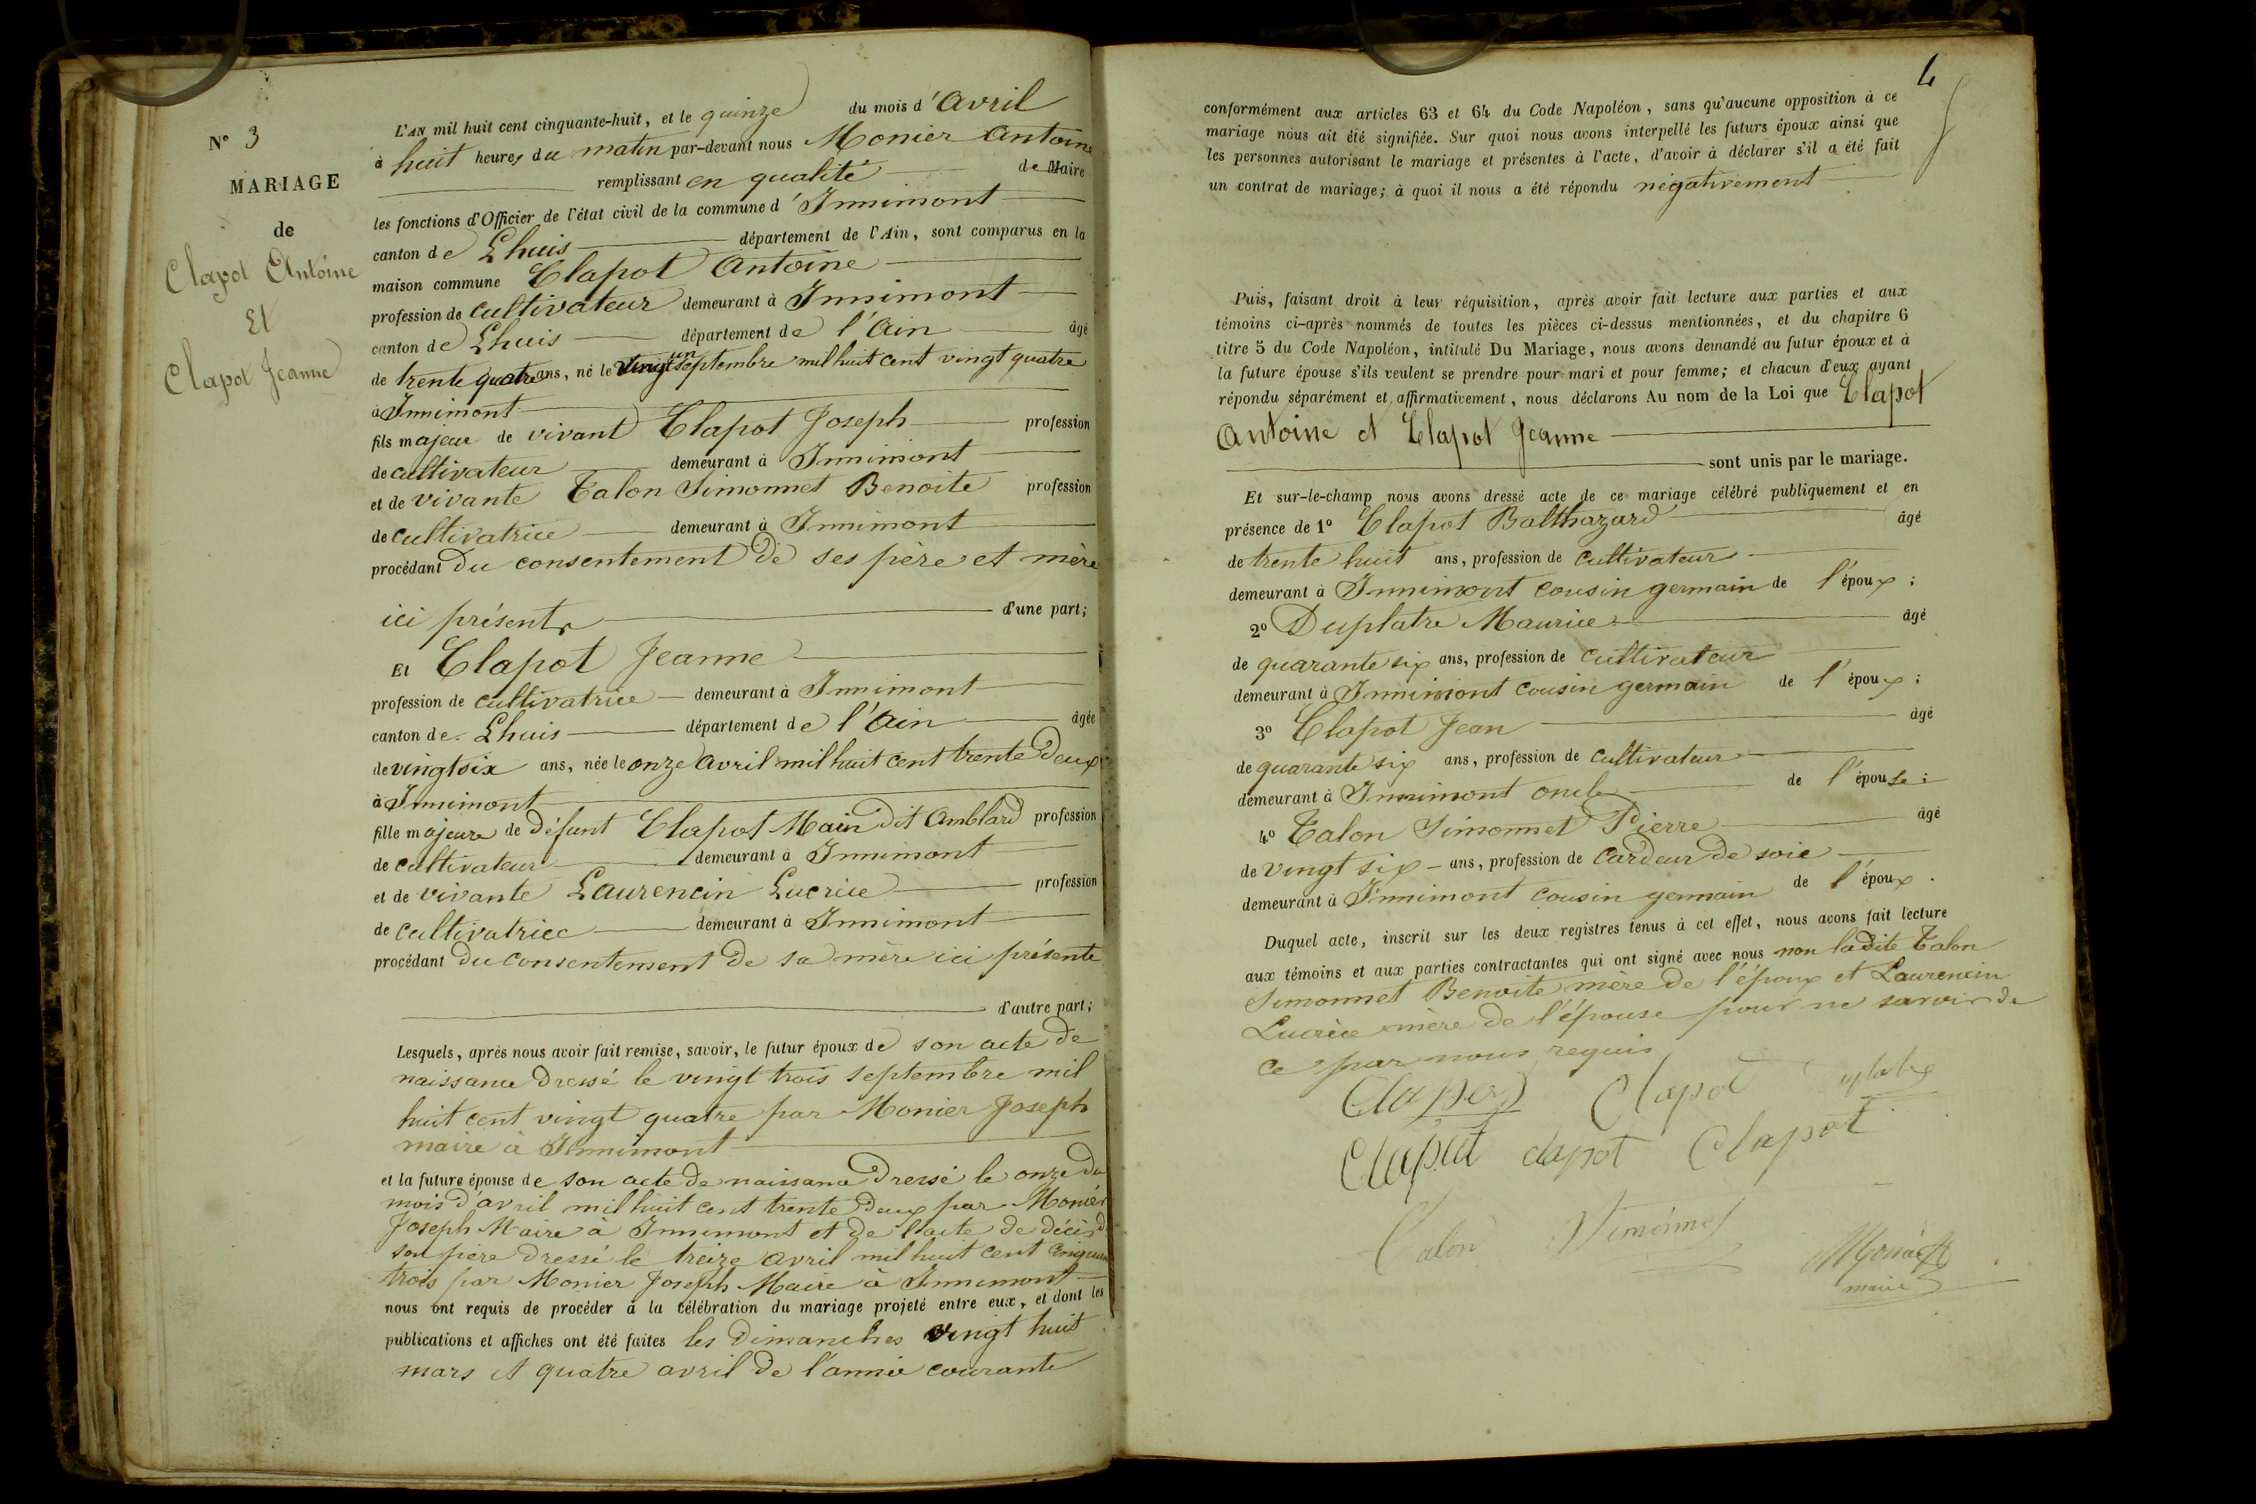 N° 3
MARIAGE
de
Clapot Antoine
Et
Clapot Jeanne
L'AN mil huit cent cinquante-huit, et le quinze du mois d'Avril
à huit heures du matin par-devant nous Monier Antoine
remplissant en qualité de Maire
les fonctions d'Officier de l'état civil de la commune d'Innimont
canton de Lhuis département de l'Ain, sont comparus en la
maison commune Clapot Antoine
profession de cultivateur demeurant à Innimont
canton de Lhuis département de l'Ain âgé
de trente quatre ans, né le vingt un septembre mil huit cent vingt quatre
à Innimont
fils majeur de vivant Clapot Joseph profession
de cultivateur demeurant à Innimont
et de vivante Talon Simonnet Benoite profession
de cultivatrice demeurant à Innimont
procédant du consentement de ses père et mère
ici présents d'une part;
Et Clapot Jeanne
profession de cultivatrice demeurant à Innimont
canton de Lhuis département de l'Ain âgée
de vingt six ans, née le onze avril mil huit cent trente deux
à Innimont
fille majeure de défunt Clapot Main dit Amblard profession
de cultivateur demeurant à Innimont
et de vivante Laurencin Lucrice profession
de cultivatrice demeurant à Innimont
procédant du consentement de sa mère ici présente
d'autre part;
Lesquels, après nous avoir fait remise, savoir, le futur époux de son acte de
naissance dressé le vingt trois septembre mil
huit cent vingt quatre par Monier Joseph
maire à Innimont
et la future épouse de son acte de naissance dressé le onze du
mois d'avril mil huit cent trente deux par Monier
Joseph Maire à Innimont et de l'acte de décès d
son père dressé le treize avril mil huit cent cinquante
trois par Monier Joseph Maire à Innimont
nous ont requis de procéder à la célébration du mariage projeté entre eux, et dont les
publications et affiches ont été faites les dimanches vingt huit
mars et quatre avril de l'année courante
4
conformément aux articles 63 et 64 du Code Napoléon, sans qu'aucune opposition à ce
mariage nous ait été signifiée. Sur quoi nous avons interpellé les futurs époux ainsi que
les personnes autorisant le mariage et présentes à l'acte, d'avoir à déclarer s'il a été fait
un contrat de mariage; à quoi il nous a été répondu négativement
Puis, faisant droit à leur réquisition, après avoir fait lecture aux parties et aux
témoins ci-après nommés de toutes les pièces ci-dessus mentionnées, et du chapitre 6
titre 5 du Code Napoléon, intitulé Du Mariage, nous avons demandé au futur époux et à
la future épouse s'ils veulent se prendre pour mari et pour femme; et chacun d'eux ayant
répondu séparément et affirmativement, nous déclarons Au nom de la Loi que Clapot
Antoine et Clapot Jeanne
sont unis par le mariage.
Et sur-le-champ nous avons dressé acte de ce mariage célébré publiquement et en
présence de 1° Clapot Balthazard âgé
de trente huit ans, profession de cultivateur
demeurant à Innimont cousin germain de l'époux;
2° Duplatre Maurice âgé
de quarante six ans, profession de cultivateur
demeurant à Innimont cousin germain de l'époux;
3° Clapot Jean âgé
de quarante six ans, profession de cultivateur
demeurant à Innimont oncle de l'épouse;
4° Talon Simonnet Pierre âgé
de vingt six ans, profession de cardeur de soie
demeurant à Innimont cousin germain de l'époux.
Duquel acte, inscrit sur les deux registres tenus à cet effet, nous avons fait lecture
aux témoins et aux parties contractantes qui ont signé avec nous non ladite Talon
Simonnet Benoite mère de l'époux et Laurencin
Lucrice mère de l'épouse pour ne savoir de
ce par nous requis
Clapot Clapot
Clapot clapot Clapot
Talon Simonnet
Monier
maire